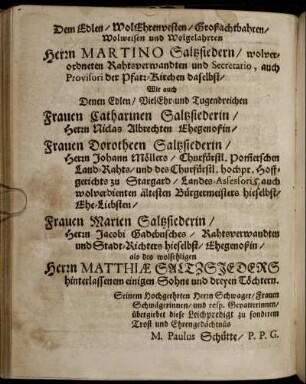 Dem Edlen/ WolEhrenvesten/ Großachtbahren/
Wolweisen und Wolgelahrten
Herrn MARTINO Saltzsiedern/ wolver-
ordneten Rahtsverwandten und Secretario, auch
Provisori der Pfarr-Kirchen daselbst/
Wie auch
Denen Edlen/ VielEhr-und Tugendreichen
Frauen Catharinen Saltzsiederin/
Herrn Niclas Albrechten Ehegenoßin/
Frauen Dorotheen Saltzsiederin/
Herrn Johann Möllers/ Churfürstl. Pomerschen
Land-Rahts/ und des Churfürstl. hochpr. Hoff-
gerichts zu Stargard/ Landes-Assessoris, auch
wolverdienten ältesten Bürgermeisters hieselbst/
Ehe-Liebsten/
Frauen Marien Saltzsiederin/
Herrn Jacobi Gadebusches/ Rahtsverwandten
und Stadt-Richters hieselbst/ Ehegenoßin/
als des wolsehligen
Herrn MATTHIÆ SALTZSIEDERS
hinterlassenem einigen Sohne und dreyen Töchtern.
Seinem Hochgeehrten Herrn Schwager/ Frauen
Schwägerinnen/ und resp. Gevatterinnen/
übergiebet diese Leichpredigt zu sonderem
Trost und Ehrengedächtnüs
M. Paulus Schütte/ P. P. G.